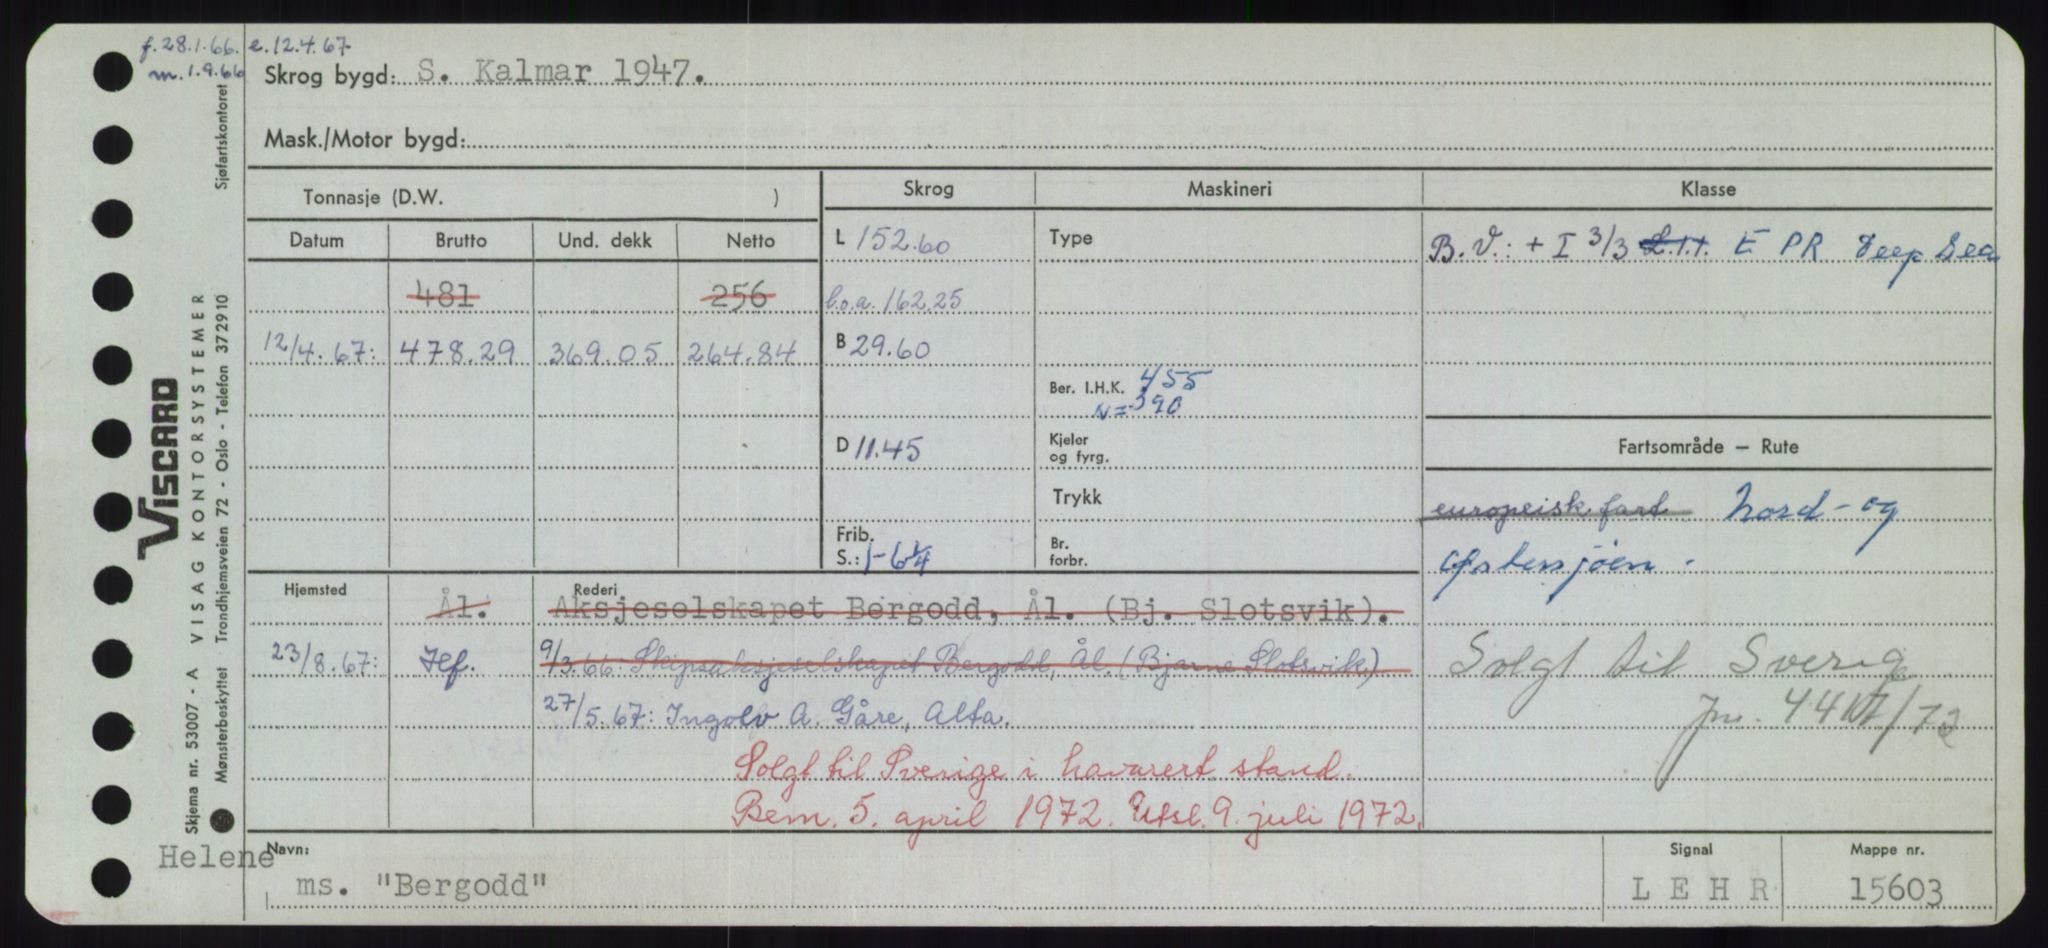 f. 28.1.66. e. 12.4.67
m. 1.9.66
Skrog bygd: S. Kalmar 1947.
Mask./Motor bygd:
Tonnasje (D.W. )
Skrog
Maskineri
Klasse
Datum
Brutto
Und. dekk
Netto
L 152.60
Type
B.V.: + I 3/3 L.I.I. E PR Deep Sea
481
256
l.o.a. 162.25
12/4.67:
478.29
369.05
264.84
B 29.60
Ber. I.H.K. 455
N=390
D 11.45
Kjeler
og fyrg.
Fartsområde — Rute
Trykk
europeisk fart Nord- og
Frib.
S.: 1-6¼
Br.
forbr.
Østersjøen.
Hjemsted
Ål.
Rederi
Aksjeselskapet Bergodd, Ål. (Bj. Slotsvik).
23/8.67: Hf.
9/3.66: Skipsaksjeselskapet Bergodd, Ål. (Bjarne Slotsvik)
Solgt til Sverige
27/5.67: Ingolv A. Gåre, Alta.
Jnr. 44 /72
Solgt til Sverige i havarert stand.
Bem. 5. april 1972. Utsl. 9. juli 1972.
Helene
Navn:
ms. "Bergodd"
Signal
L E H R
Mappe nr.
15603
Viscard
Skjema nr. 53007 - A VISAG KONTORSYSTEMER
Mønsterbeskyttet Trondhjemsveien 72 - Oslo - Telefon 372910
Sjøfartskontoret